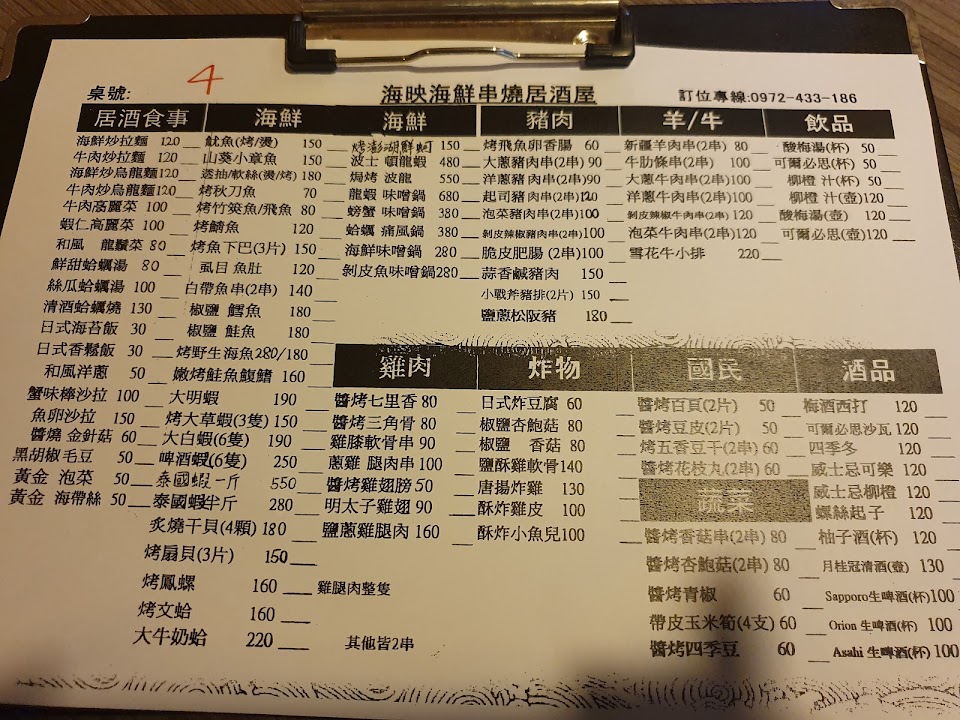 桌號: 4
海映海鮮串燒居酒屋
訂位專線:0972-433-186
居酒食事
海鮮炒拉麵 120
牛肉炒拉麵 120
海鮮炒烏龍麵120
牛肉炒烏龍麵120
牛肉高麗菜 100
蝦仁高麗菜 100
和風 龍鬚菜 80
鮮甜蛤蠣湯 80
絲瓜蛤蠣湯 100
清酒蛤蠣燒 130
日式海苔飯 30
日式香鬆飯 30
和風洋蔥 50
蟹味棒沙拉 100
魚卵沙拉 150
醬燒 金針菇 60
黑胡椒毛豆 50
黃金 泡菜 50
黃金 海帶絲 50
海鮮
魷魚(烤/燙) 150
山葵小章魚 150
透抽/軟絲(燙/烤) 180
烤秋刀魚 70
烤竹筴魚/飛魚 80
烤鯖魚 120
烤魚下巴(3片) 150
虱目魚肚 120
白帶魚串(2串) 140
椒鹽 鱈魚 180
椒鹽 鮭魚 180
烤野生海魚280/180
嫩烤鮭魚腹鰭 160
大明蝦 190
烤大草蝦(3隻) 150
大白蝦(6隻) 190
啤酒蝦(6隻) 250
泰國蝦一斤 550
泰國蝦半斤 280
炙燒干貝(4顆) 180
烤扇貝(3片) 150
烤鳳螺 160
烤文蛤 160
大牛奶蛤 220
海鮮
烤澎湖鮮蚵 150
波士 頓龍蝦 480
焗烤 波龍 550
龍蝦 味噌鍋 680
螃蟹 味噌鍋 380
蛤蠣 痛風鍋 380
海鮮味噌鍋 280
剝皮魚味噌鍋280
豬肉
烤飛魚卵香腸 60
大蔥豬肉串(2串) 90
洋蔥豬肉串(2串)90
起司豬肉串(2串)120
泡菜豬肉串(2串)100
剝皮辣椒豬肉串(2串)100
脆皮肥腸 (2串)100
蒜香鹹豬肉 150
小戰斧豬排(2片) 150
鹽蔥松阪豬 180
羊/牛
新疆羊肉串(2串) 80
牛肋條串(2串) 100
大蔥牛肉串(2串)100
洋蔥牛肉串(2串)100
剝皮辣椒牛肉串(2串) 120
泡菜牛肉串(2串)120
雪花牛小排 220
飲品
酸梅湯(杯) 50
可爾必思(杯) 50
柳橙 汁(杯) 50
柳橙 汁(壺)120
酸梅湯(壺) 120
可爾必思(壺)120
雞肉
醬烤七里香 80
醬烤三角骨 80
雞膝軟骨串 90
蔥雞 腿肉串100
醬烤雞翅膀 50
明太子雞翅 90
鹽蔥雞腿肉 160
雞腿肉整隻
其他皆2串
炸物
日式炸豆腐 60
椒鹽杏鮑菇 80
椒鹽 香菇 80
鹽酥雞軟骨140
唐揚炸雞 130
酥炸雞皮 100
酥炸小魚兒100
國民
醬烤百頁(2片) 50
醬烤豆皮(2片) 50
烤五香豆干(2串) 60
醬烤花枝丸(2串) 60
蔬菜
醬烤香菇串(2串) 80
醬烤杏鮑菇(2串) 80
醬烤青椒 60
帶皮玉米筍(4支) 60
醬烤四季豆 60
酒品
梅酒西打 120
可爾必思沙瓦 120
四季冬 120
威士忌可樂 120
威士忌柳橙 120
螺絲起子 120
柚子酒(杯) 120
月桂冠清酒(壺) 130
Sapporo生啤酒(杯)100
Orion 生啤酒(杯) 100
Asahi 生啤酒(杯)100